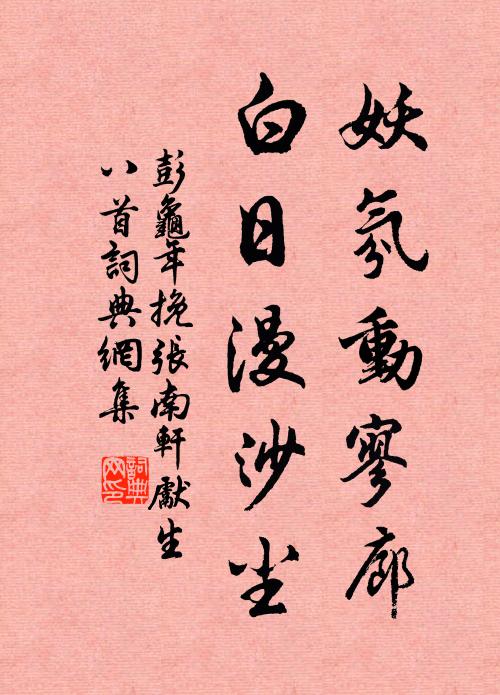 妖氛動寥廊
白日漫沙尘
彭龜年挽張南軒獻生
八首詞典網集
詞典
网印